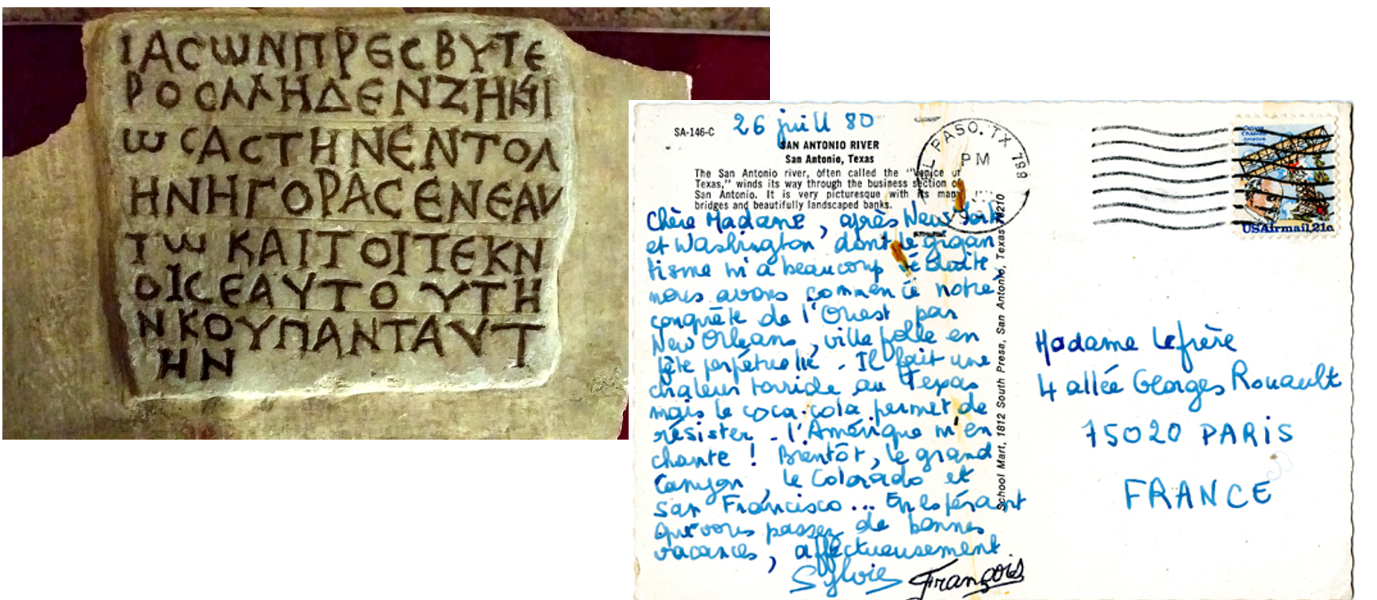 ΙΑCωΝΠΡЄCΒΥΤЄ
ΡΟCΛΛΗΔЄΝΖΗΚΙ
ωCΑCΤΗΝЄΝΤΟΛ
ΗΝΗΓΟΡΑCЄΝЄΑΥ
Τω ΚΑΙΤΟΙΤЄΚΝ
ΟΙCЄΑΥΤΟΥΤΗ
ΝΚΟΥΠΑΝΤΑΥΤ
ΗΝ
SA-146-C
26 juill 80
SAN ANTONIO RIVER
San Antonio, Texas
The San Antonio river, often called the "Venice of
Texas," winds its way through the business section of
San Antonio. It is very picturesque with its many
bridges and beautifully landscaped banks.
Chère Madame, après New York
et Washington dont le gigan
tisme m'a beaucoup séduite,
nous avons commencé notre
conquête de l'Ouest par
New Orleans, ville folle en
fête perpétuelle. Il fait une
chaleur torride au Texas
mais le coca-cola permet de
résister. l'Amérique m'en
chante ! Bientôt, le grand
Canyon, le Colorado et
San Francisco... En espérant
que vous passez de bonnes
vacances, affectueusement.
Sylvie François
School Mart, 1812 South Presa, San Antonio, Texas 78210
EL PASO, TX 799
PM
USAirmail 21c
Madame Lefrère
4 allée Georges Rouault
75020 PARIS
FRANCE